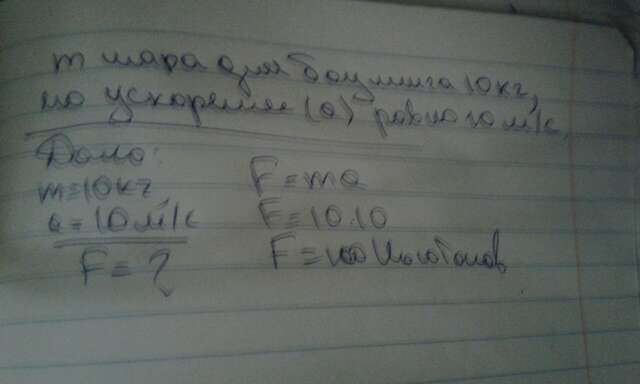 m шара для боулинга 10кг,
но ускорение (a) равно 10 м/с.
Дано:
m=10кг
a=10м/с
F=?
F=ma
F=10·10
F=100 Ньютонов